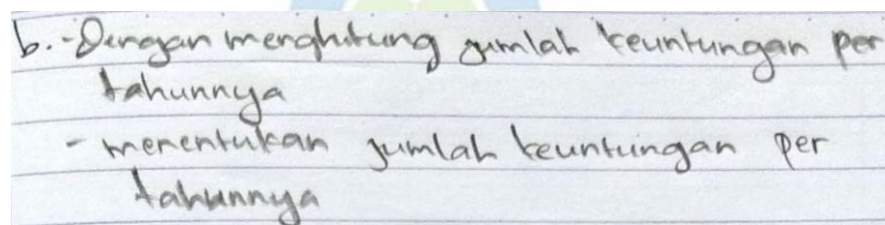 b. - Dengan menghitung jumlah keuntungan per
tahunnya
- menentukan jumlah keuntungan per
tahunnya